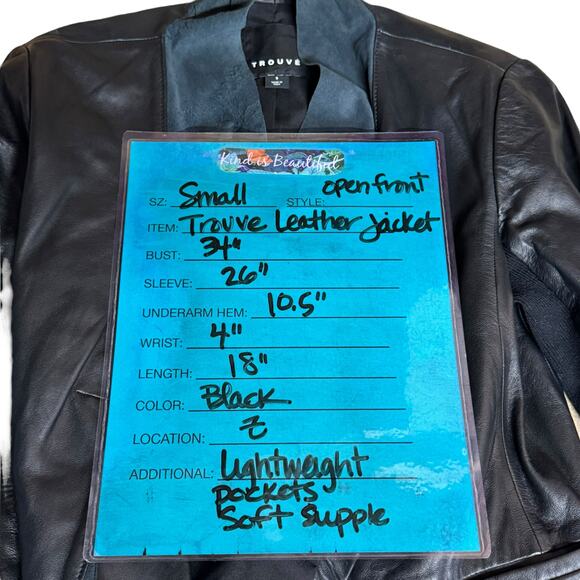 TROUVÉ
Kind is Beautiful
SZ: Small STYLE: open front
ITEM: Trouve Leather Jacket
BUST: 34"
SLEEVE: 26"
UNDERARM HEM: 10.5"
WRIST: 4"
LENGTH: 18"
COLOR: Black
LOCATION: Z
ADDITIONAL: Lightweight
pockets
Soft Supple